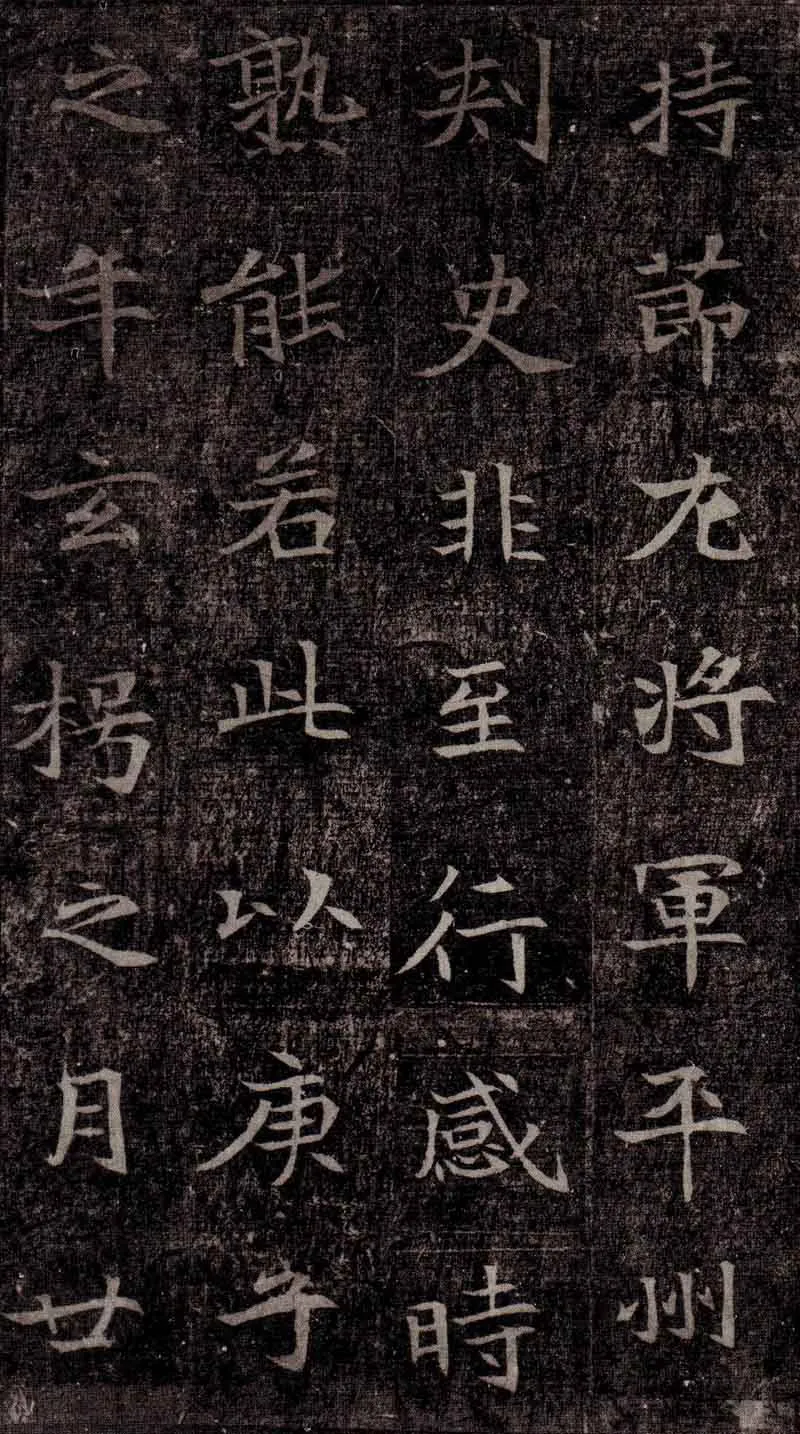 持莭左將軍平州
刾史非至行感時
熟能若此以庚子
之年玄枵之月廿